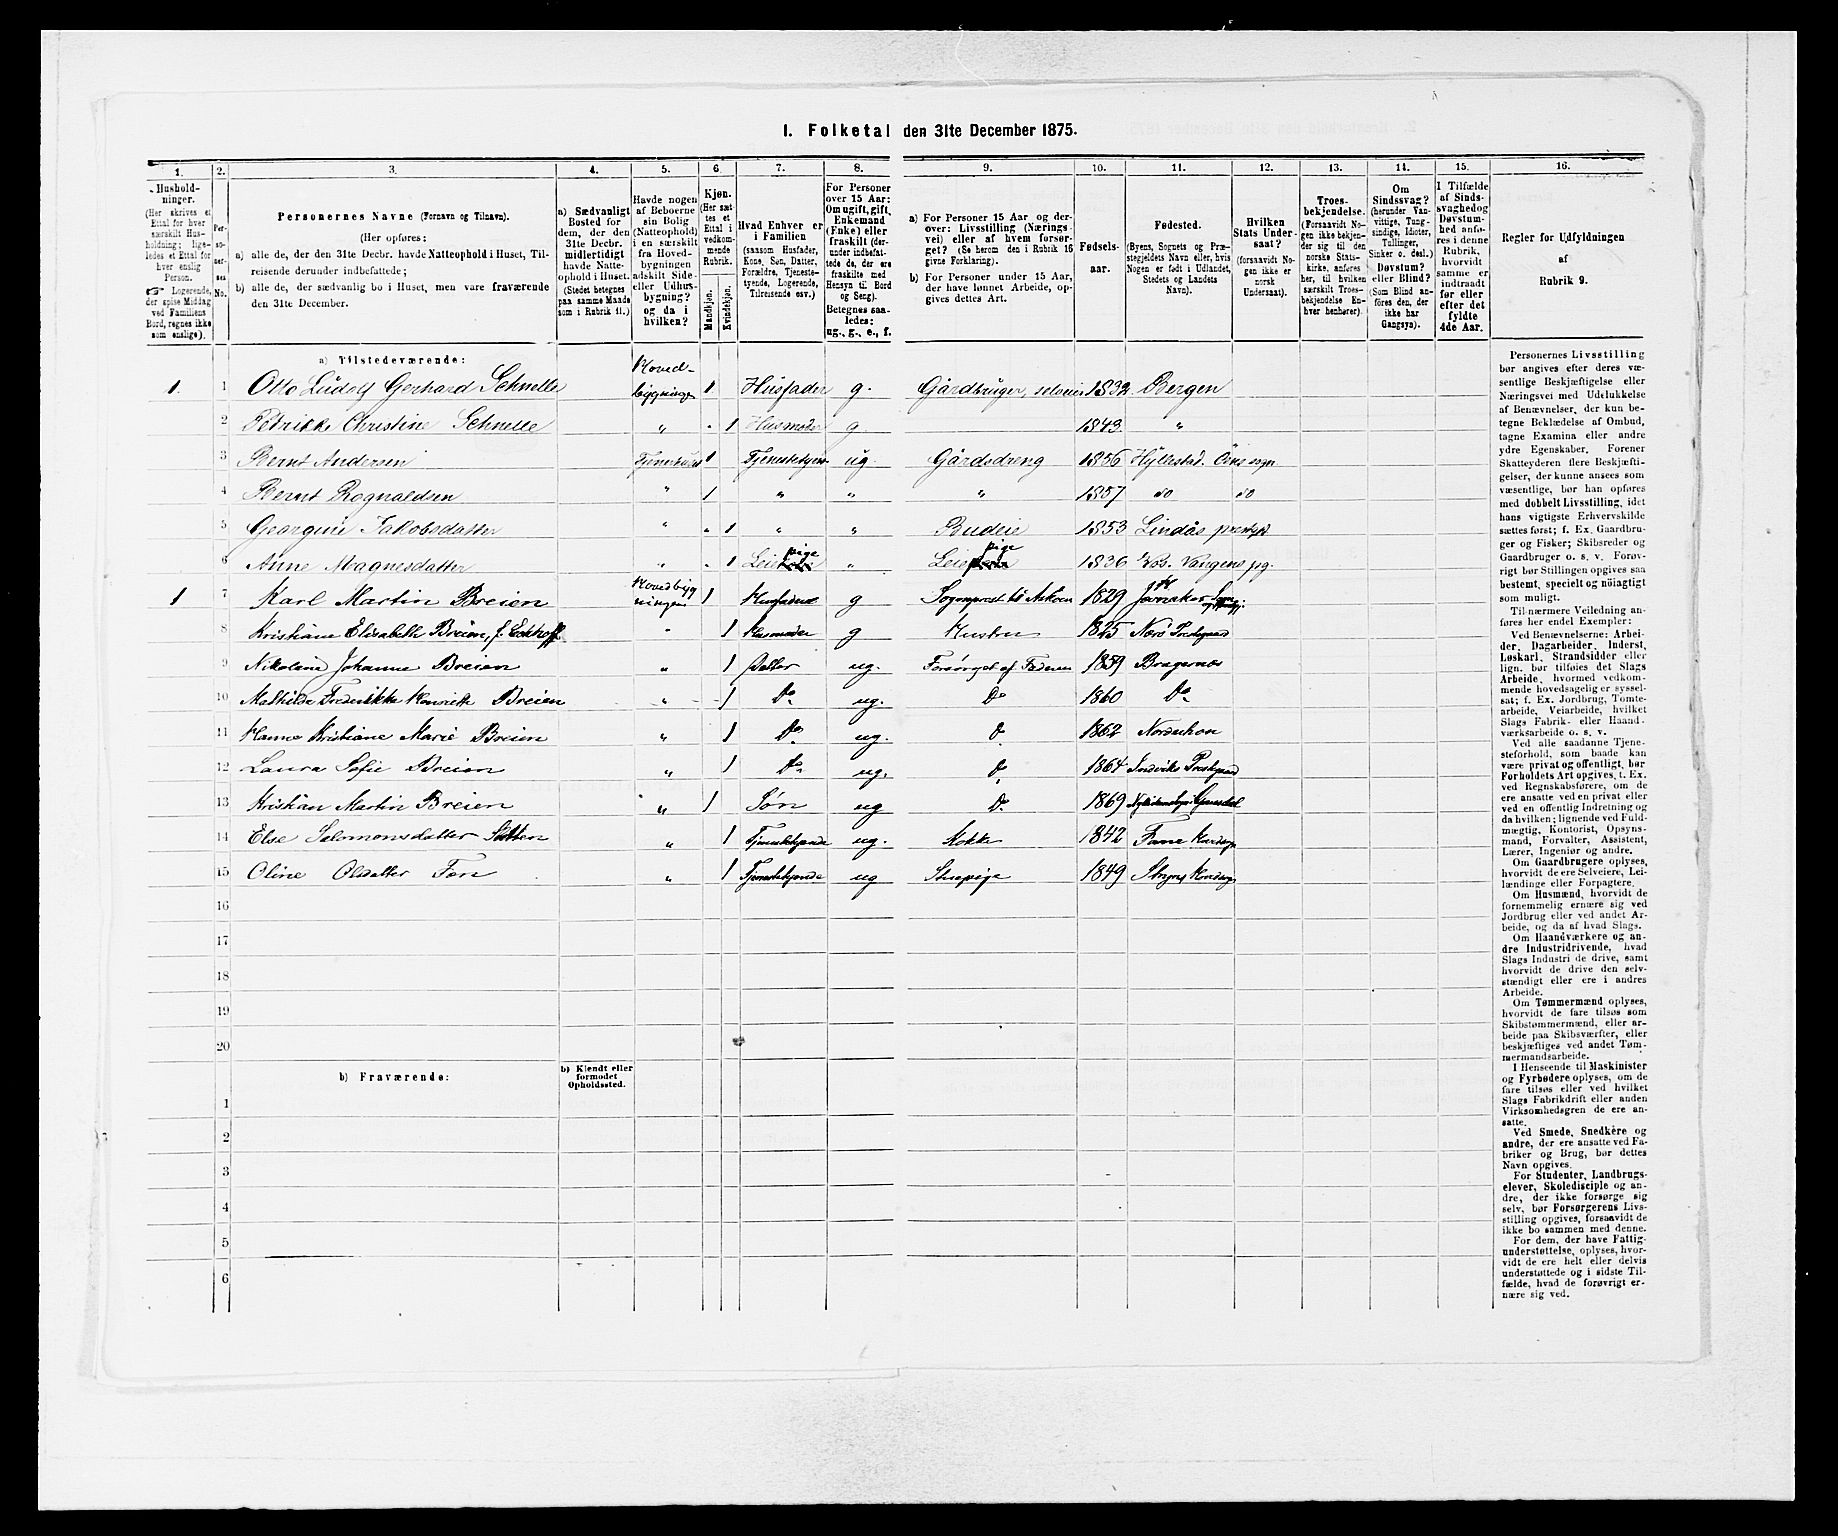 I. Folketal den 31te December 1875.
1. 2. 3. 4. 5. 6. 7. 8. 9. 10. 11. 12. 13. 14. 15. 16.
Hushold-
ninger.
(Her skrives et
Ettal for hver
særskilt Hus-
holdning; lige-
ledes et Ettal for
hver enslig
Person.
☞ Logerende,
der spise Middag
ved Familiens
Bord, regnes ikke
som enslige).
Per-
so-
ner-
nes
No.
Personernes Navne (Fornavn og Tilnavn).
(Her opføres:
a) alle de, der den 31te Decbr. havde Natteophold i Huset, Til-
reisende derunder indbefattede;
b) alle de, der sædvanlig bo i Huset, men vare fraværende
den 31te December.
a) Sædvanligt
Bosted for
dem, der den
31te Decbr.
midlertidigt
havde Natte-
ophold i Huset.
(Stedet betegnes
paa samme Maade
som i Rubrik 11.)
Havde nogen
af Beboerne
sin Bolig
(Natteophold)
i en særskilt
fra Hoved-
bygningen
adskilt Side-
eller Udhus-
bygning?
og da i
hvilken?
Kjøn.
(Her sæt-
tes et
Ettal i
vedkom-
mende
Rubrik.
Mandkjøn.
Kvindekjøn.
Hvad Enhver er
i Familien
(saasom Husfader,
Kone, Søn, Datter,
Forældre, Tjeneste-
tyende, Logerende,
Tilreisende osv.)
For Personer
over 15 Aar:
Om ugift, gift,
Enkemand
(Enke) eller
fraskilt (der-
under indbefat-
tede de, der ere
fraskilte med
Hensyn til Bord
og Seng).
Betegnes saa-
ledes:
ug., g., e., f.
a) For Personer 15 Aar og der-
over: Livsstilling (Nærings-
vei) eller af hvem forsør-
get? (Se herom den i Rubrik 16
givne Forklaring).
b) For Personer under 15 Aar,
der have lønnet Arbeide, op-
gives dettes Art.
Fødsels-
aar.
Fødested.
(Byens, Sognets og Præ-
stegjeldets Navn eller, hvis
Nogen er født i Udlandet,
Stedets og Landets
Navn).
Hvilken
Stats Under-
saat?
(forsaavidt No-
gen ikke er
norsk
Undersaat).
Troes-
bekjendelse.
(Forsaavidt No-
gen ikke bekjen-
der sig til den
norske Stats-
kirke, anføres
her, til hvilken
særskilt Troes-
bekjendelse En-
hver henhører).
Om
Sindssvag?
(herunder Van-
vittige, Tung-
sindige, Idioter,
Tullinger,
Sinker o. desl.)
Døvstum?
eller Blind?
(Som Blind an-
føres den, der
ikke har
Gangsyn).
I Tilfælde
af Sinds-
svaghed og
Døvstum-
hed anfø-
res i denne
Rubrik,
hvorvidt
samme er
indtraadt
før eller
efter det
fyldte
4de Aar.
Regler for Udfyldningen
af
Rubrik 9.
a) Tilstedeværende:
1. 1 Otto Ludolf Gerhard Schnelle Hoved-
bygningen 1 Husfader g. Gårdbruger, seleier 1832 Bergen
2 Petrikke Christine Schnelle „ „ 1 Husmoder g 1843. „
3 Bernt Andersen 1 ug. Gårdsdreng 1856 Hyllestad.
4 Bernt Rognaldsen „ 1 „ „ „ 1857 do do
5 Georgine Jakobsdatter „ „ 1 „ „ Budeie 1853 Lindås
6 Anne Magnesdatter „ „ 1 Leiepige „ Leiepige 1836 Vos.
1 7 Karl Martin Breien Hovedbyg
ningen 1 Husfader g Sogneprest til Askvoll 1829 Jevnaker
8 Kristiane Elisabeth Breien, f. Eckhoff „ 1 Husmoder g Hustru 1825
9 Nikoline Johanne Breien „ 1 Datter ug. Forsørget af Faderen 1859 Bragernæs
10 Mathilde Frederikke Henriette Breien „ 1 Do ug. Do 1860 Do
11 Hanna Kristiane Marie Breien „ 1 Do ug. Do 1862 Norderhov
12 Laura Sofie Breien „ 1 Do ug. Do 1864
13 Kristian Martin Breien „ 1 Søn ug Do 1869
14 Else Salomonsdatter „ 1 Tjenestetyende ug. Kokke 1842
15 Oline Olsdatter „ 1 Tjenestetyende ug Stuepige 1849
16
17
18
19
20
b) Fraværende:
b) Kjendt eller
formodet
Opholdssted.
1
2
3
4
5
6
Personernes Livsstilling
bør angives efter deres væ-
sentlige Beskjæftigelse eller
Næringsvei med Udelukkelse
af Benævnelser, der kun be-
tegne Beklædelse af Ombud,
tagne Examina eller andre
ydre Egenskaber. Forener
Skatteyderen flere Beskjæfti-
gelser, der kunne ansees som
væsentlige, bør han opføres
med dobbelt Livsstilling, idet
hans vigtigste Erhvervskilde
sættes først; f. Ex. Gaardbru-
ger og Fisker; Skibsreder og
Gaardbruger o. s. v. Forøv-
rigt bør Stillingen opgives saa
bestemt, specielt og nøiagtigt
som muligt.
Til nærmere Veiledning an-
føres her endel Exempler:
Ved Benævnelserne: Arbei-
der, Dagarbeider, Inderst,
Løskarl, Strandsidder eller
lign. bør tilføies det Slags
Arbeide, hvormed vedkom-
mende hovedsagelig er syssel-
sat; f. Ex. Jordbrug, Tomte-
arbeide, Veiarbeide, hvilket
Slags Fabrik- eller Haand-
værksarbeide o. s. v.
Ved alle saadanne Tjene-
steforhold, som baade kan
være privat og offentligt, bør
Forholdets Art opgives, t. Ex.
ved Regnskabsførere, om de
ere ansatte ved en privat eller
ved en offentlig Indretning og
da hvilken; lignende ved Fuld-
mægtig, Kontorist, Opsyns-
mand, Forvalter, Assistent,
Lærer, Ingeniør og andre.
Om Gaardbrugere oplyses,
hvorvidt de ere Selveiere, Lei-
lændinge eller Forpagtere.
Om Husmænd, hvorvidt de
fornemmelig ernære sig ved
Jordbrug eller ved andet Ar-
beide, og da af hvad Slags.
Om Haandværkere og an-
dre Industridrivende, hvad
Slags Industri de drive, samt
hvorvidt de drive den selv-
stændigt eller ere i andres
Arbeide.
Om Tømmermænd oplyses,
hvorvidt de fare tilsøs som
Skibstømmermænd, eller ar-
beide paa Skibsværfter, eller
beskjæftiges ved andet Tøm-
mermandsarbeide.
I Henseende til Maskinister
og Fyrbødere oplyses, om de
fare tilsøs eller ved hvilket
Slags Fabrikdrift eller anden
Virksomhedsgren de ere an-
satte.
Ved Smede, Snedkere og
andre, der ere ansatte ved Fa-
briker og Brug, bør dettes
Navn opgives.
For Studenter, Landbrugs-
elever, Skoledisciple og an-
dre, der ikke forsørge sig
selv, bør Forsørgerens Livs-
stilling opgives, forsaavidt de
ikke bo sammen med denne.
For dem, der have Fattig-
understøttelse, oplyses, hvor-
vidt de ere helt eller delvis
understøttede og i sidste Til-
fælde, hvad de forøvrigt er-
nære sig ved.